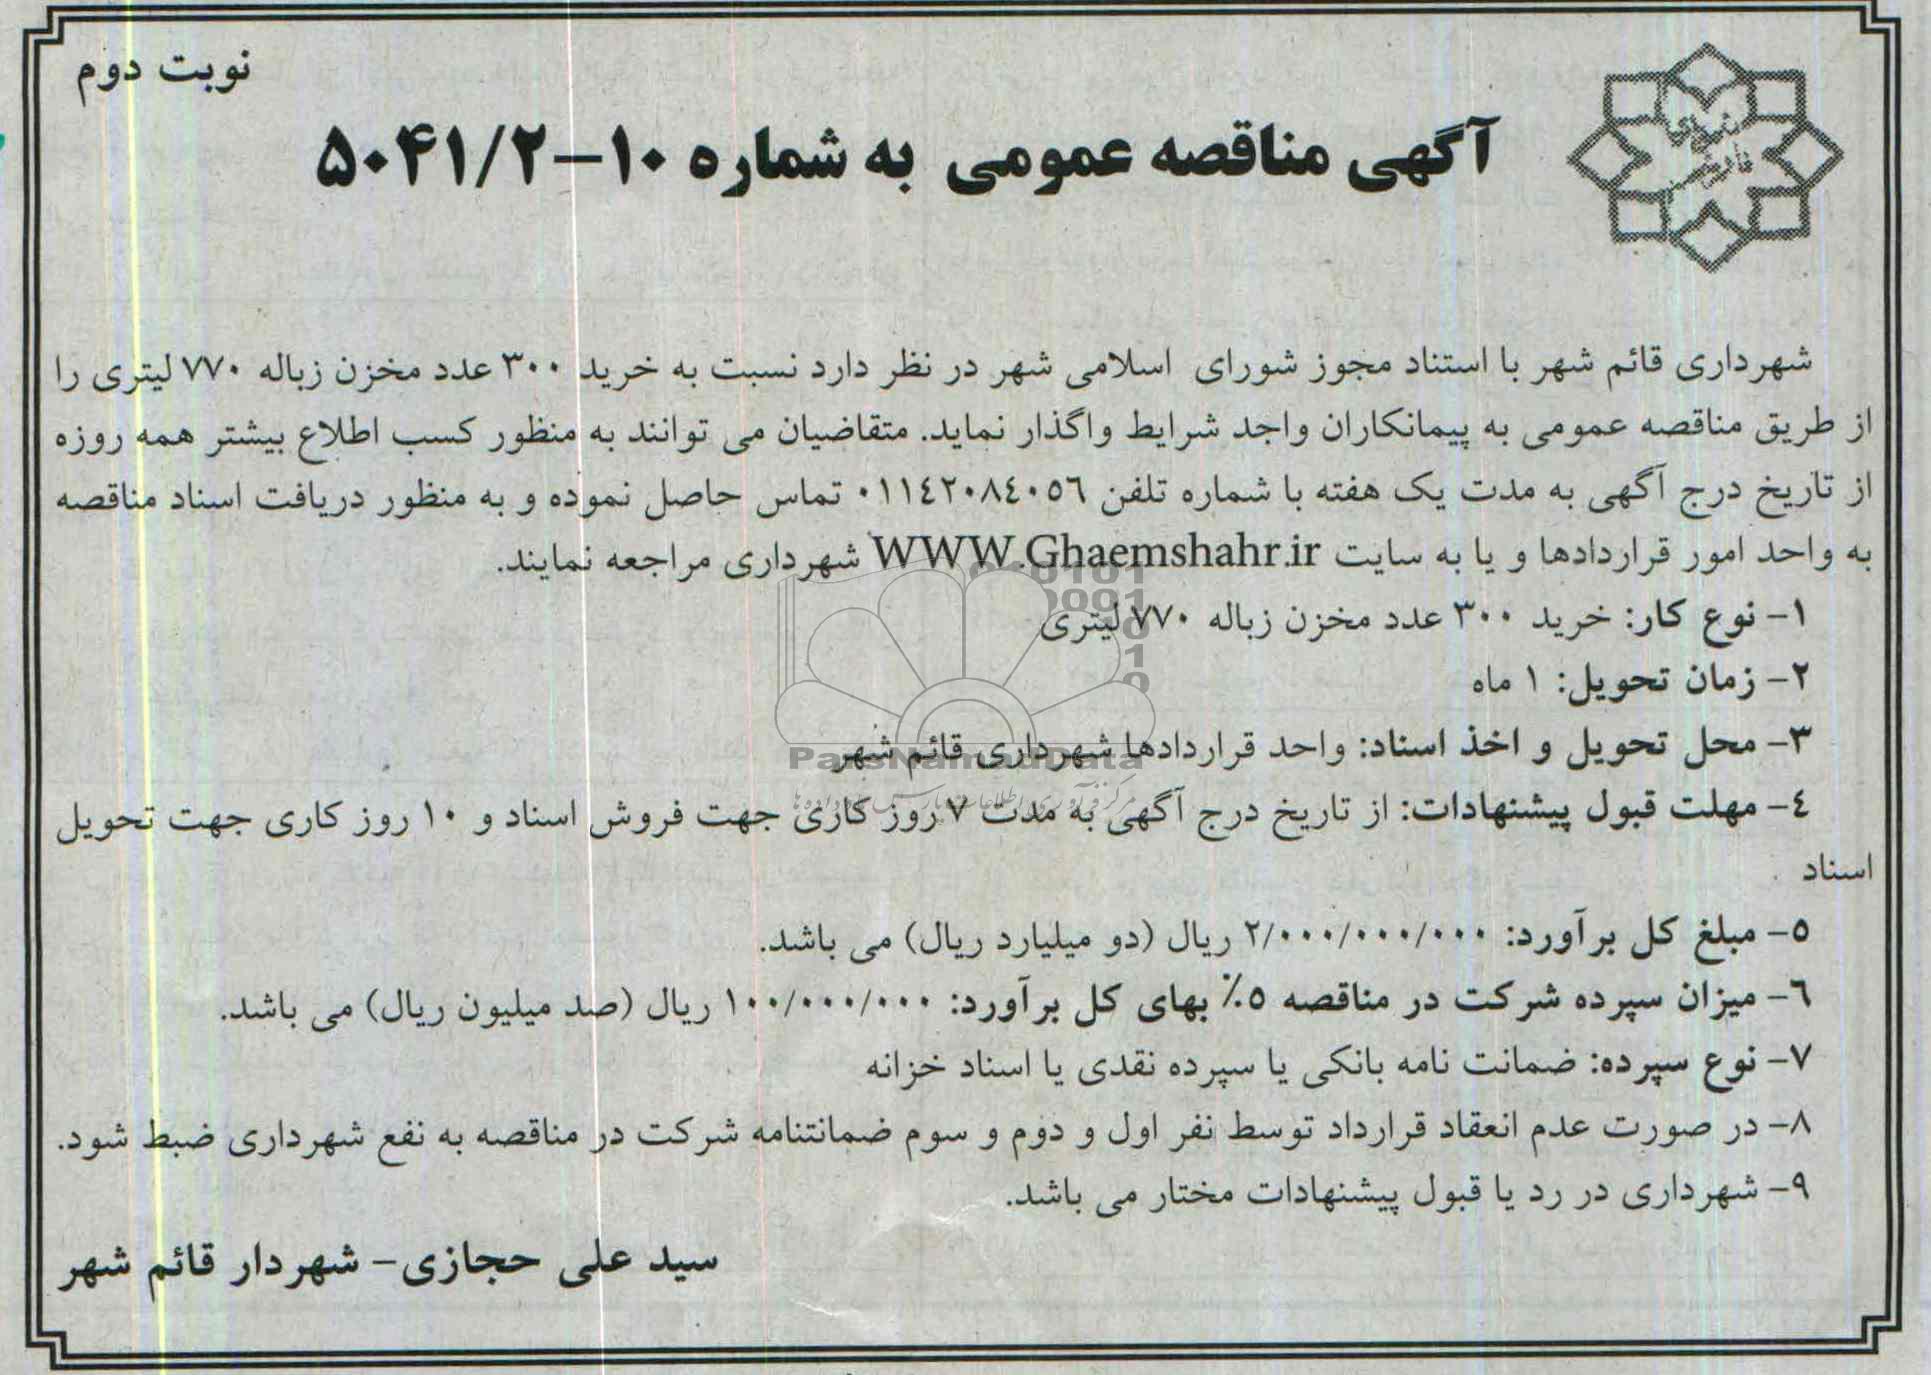 نوبت دوم
شهرداری
قائم شهر
آگهی مناقصه عمومی به شماره ۱۰-۵۰۴۱/۲
شهرداری قائم شهر با استناد مجوز شورای اسلامی شهر در نظر دارد نسبت به خرید ۳۰۰ عدد مخزن زباله ۷۷۰ لیتری را
از طریق مناقصه عمومی به پیمانکاران واجد شرایط واگذار نماید. متقاضیان می توانند به منظور کسب اطلاع بیشتر همه روزه
از تاریخ درج آگهی به مدت یک هفته با شماره تلفن ۰۱۱٤۲۰۸٤۰۵٦ تماس حاصل نموده و به منظور دریافت اسناد مناقصه
به واحد امور قراردادها و یا به سایت WWW.Ghaemshahr.ir شهرداری مراجعه نمایند.
۱- نوع کار: خرید ۳۰۰ عدد مخزن زباله ۷۷۰ لیتری
۲- زمان تحویل: ۱ ماه
۳- محل تحویل و اخذ اسناد: واحد قراردادها شهرداری قائم شهر
ParsNamadData
٤- مهلت قبول پیشنهادات: از تاریخ درج آگهی به مدت ۷ روز کاری جهت فروش اسناد و ۱۰ روز کاری جهت تحویل
اسناد
۵- مبلغ کل برآورد: ۲/۰۰۰/۰۰۰/۰۰۰ ریال (دو میلیارد ریال) می باشد.
٦- میزان سپرده شرکت در مناقصه ۵٪ بهای کل برآورد: ۱۰۰/۰۰۰/۰۰۰ ریال (صد میلیون ریال) می باشد.
۷- نوع سپرده: ضمانت نامه بانکی یا سپرده نقدی یا اسناد خزانه
۸- در صورت عدم انعقاد قرارداد توسط نفر اول و دوم و سوم ضمانتنامه شرکت در مناقصه به نفع شهرداری ضبط شود.
۹- شهرداری در رد یا قبول پیشنهادات مختار می باشد.
سید علی حجازی- شهردار قائم شهر